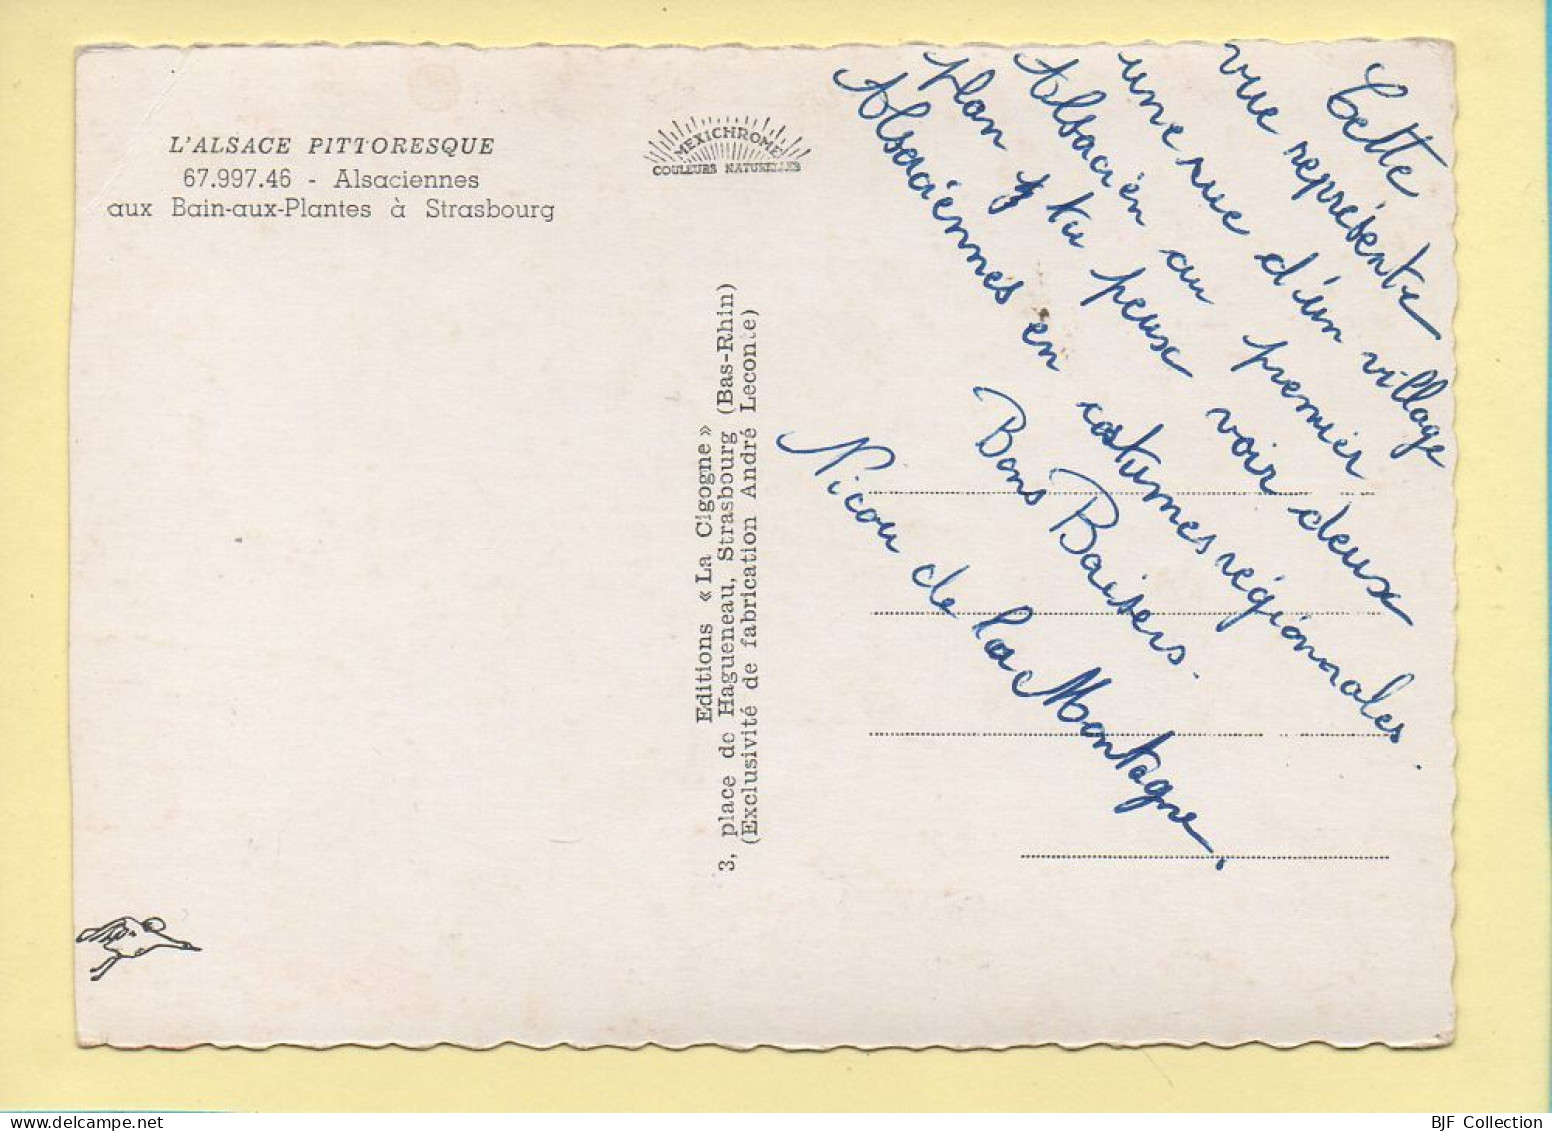 L'ALSACE PITTORESQUE
67.997.46 - Alsaciennes
aux Bain-aux-Plantes à Strasbourg
MEXICHROME
COULEURS NATURELLES
Editions « La Cigogne »
3, place de Hagueneau, Strasbourg (Bas-Rhin)
(Exclusivité de fabrication André Leconte)
Cette
vue représente
une rue d'un village
Alsacien au premier
plan tu peux voir deux
Alsaciennes en costumes régionnales.
Bons Baisers.
Nicou de la Montagne.
BJF Collection